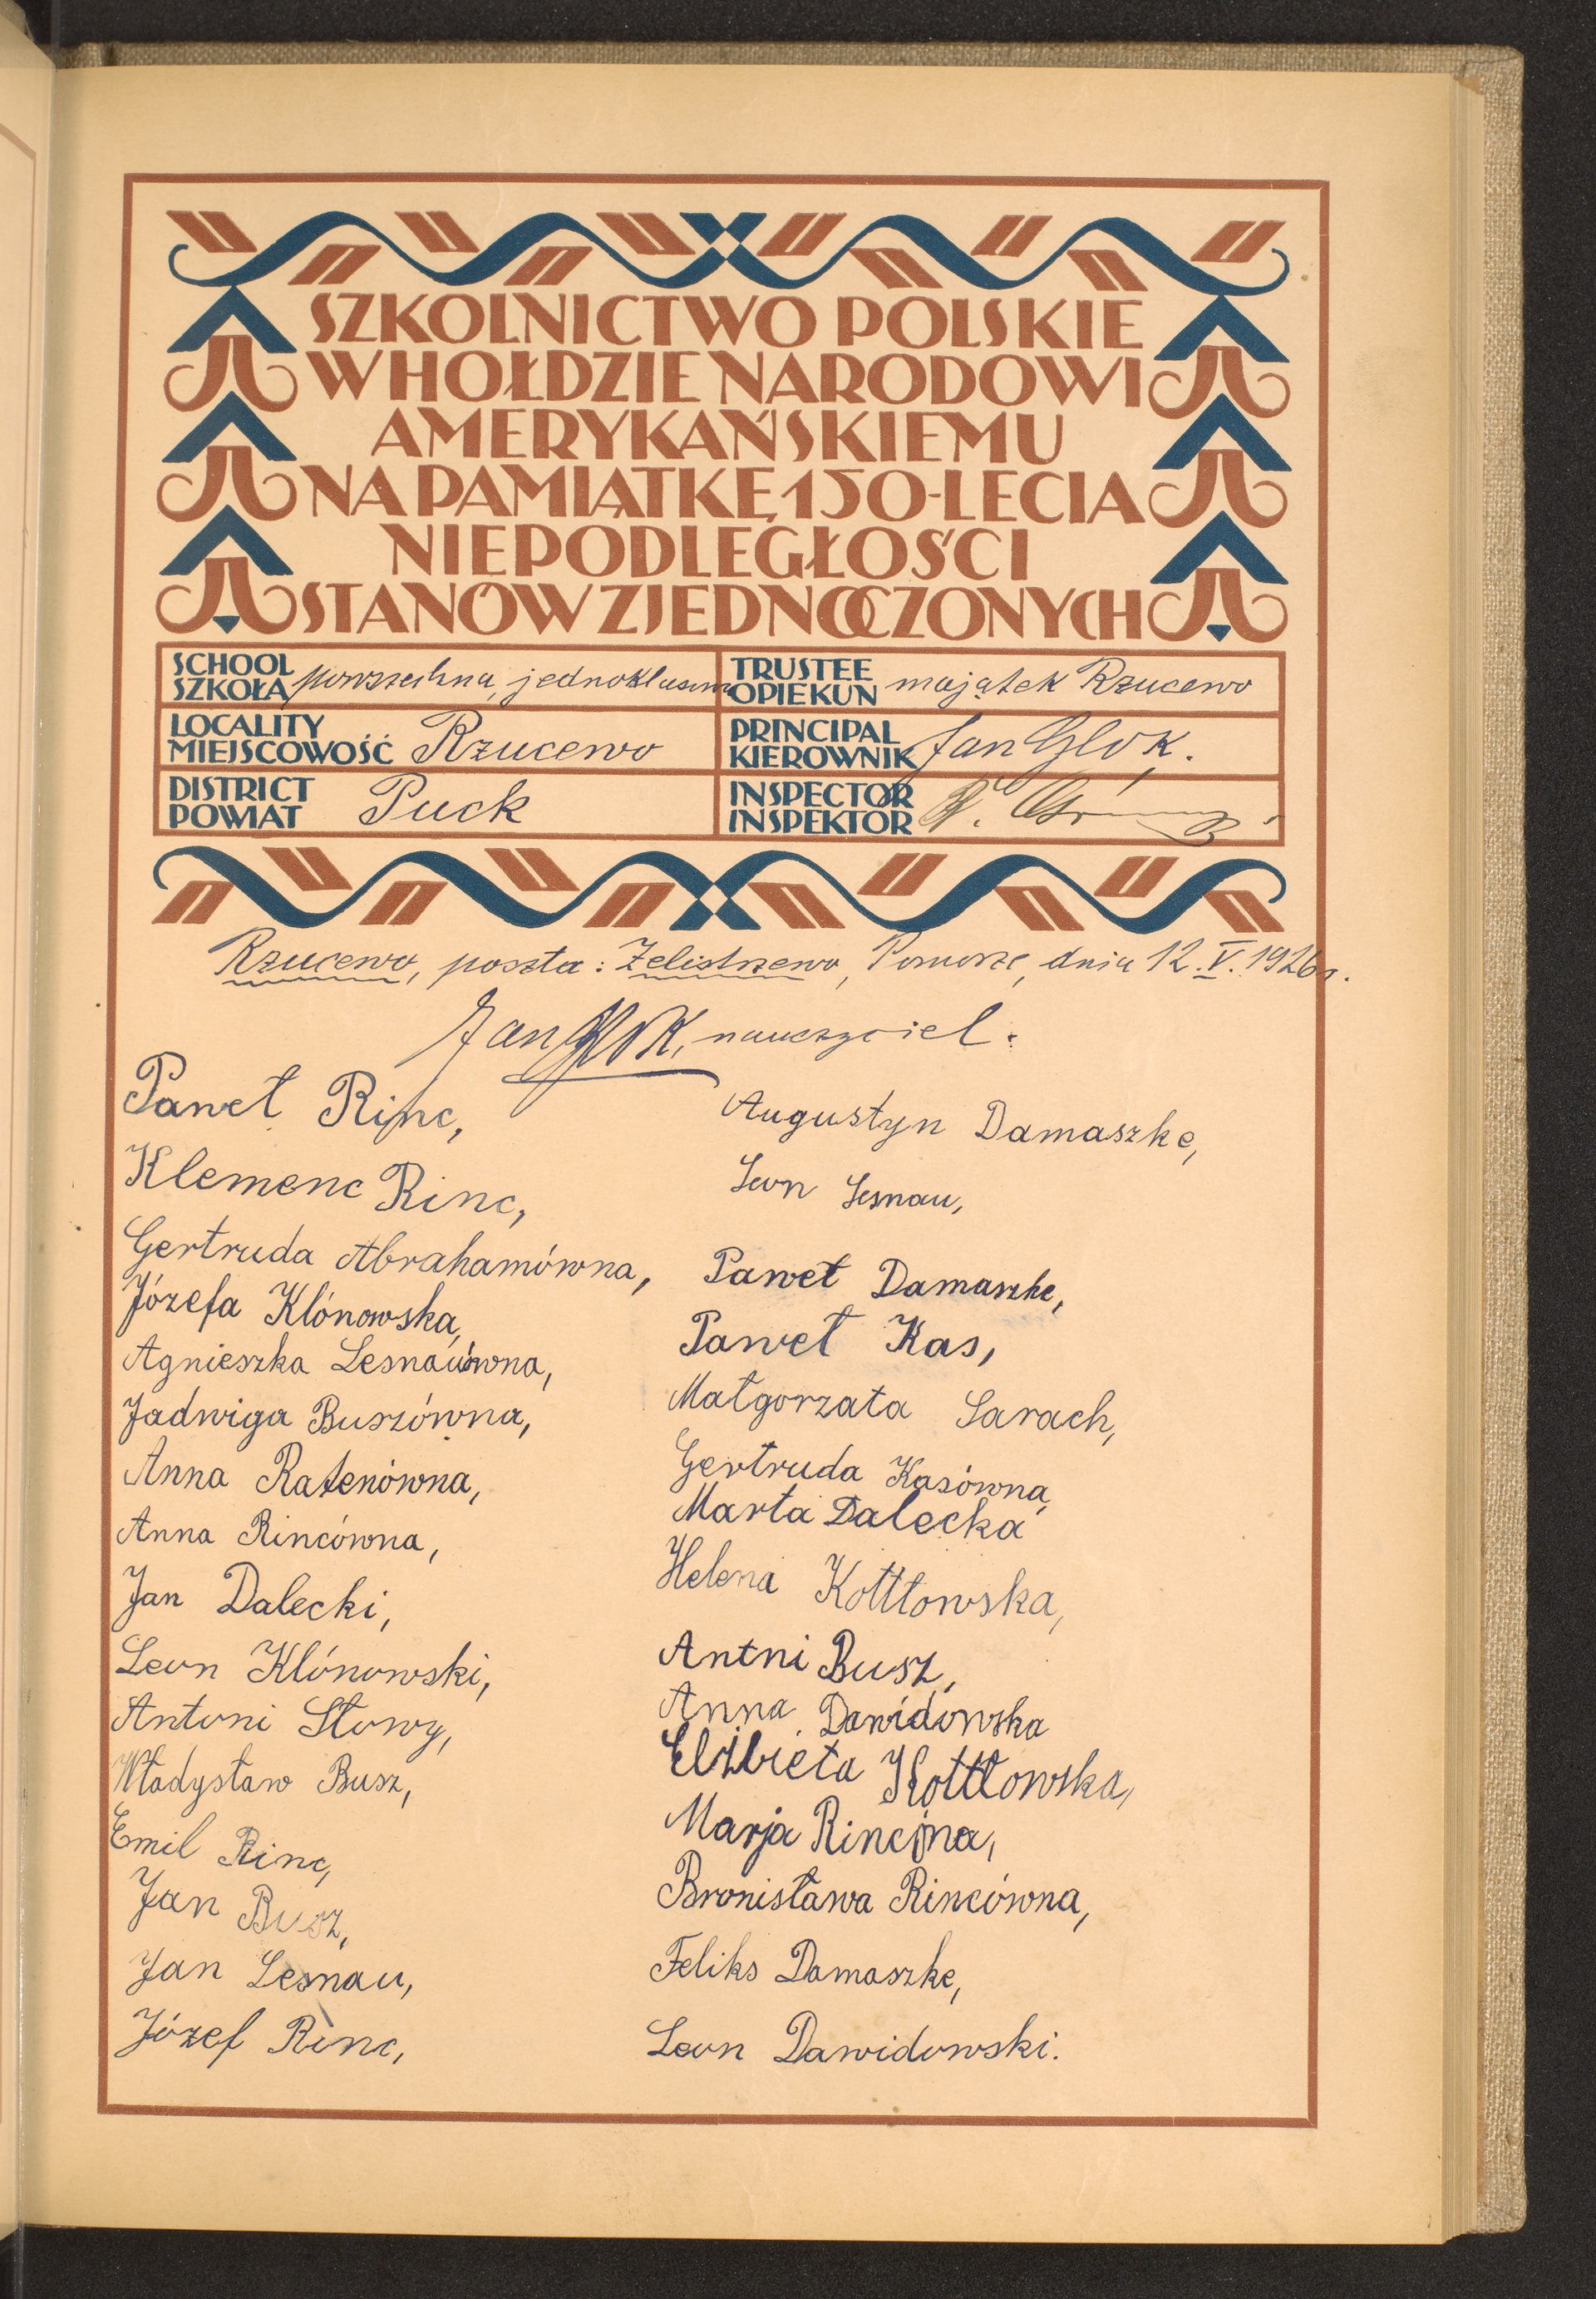 SZKOLNICTWO POLSKIE
W HOŁDZIE NARODOWI
AMERYKAŃSKIEMU
NA PAMIĄTKĘ 150-LECIA
NIEPODLEGŁOŚCI
STANÓW ZJEDNOCZONYCH
SCHOOL
SZKOŁA powszechna, jednoklasowa
TRUSTEE
OPIEKUN majątek Rzucewo
LOCALITY
MIEJSCOWOŚĆ Rzucewo
PRINCIPAL
KIEROWNIK Jan Glok.
DISTRICT
POWIAT Puck
INSPECTOR
INSPEKTOR
Rzucewo, poszta: Żelistrzewo, Pomorze, dnia 12.V.1926 r.
Jan Glok, nauczyciel.
Paweł Rinc,
Klemenc Rinc,
Gertruda Abrahamówna,
Józefa Klónowska,
Agnieszka Lesnauówna,
Jadwiga Buszówna,
Anna Ratenówna,
Anna Rincówna,
Jan Dalecki,
Leon Klónowski,
Antoni Słowy,
Władysław Busz,
Emil Rinc,
Jan Busz,
Jan Lesnau,
Józef Rinc,
Augustyn Damaszke,
Leon Lesnau,
Paweł Damaszke,
Paweł Kas,
Małgorzata Sarach,
Gertruda Kasówna,
Marta Dalecka
Helena Kottłowska,
Antni Busz,
Anna Dawidowska
Elżbieta Kottłowska,
Marja Rincóna,
Bronisława Rincówna,
Feliks Damaszke,
Leon Dawidowski.